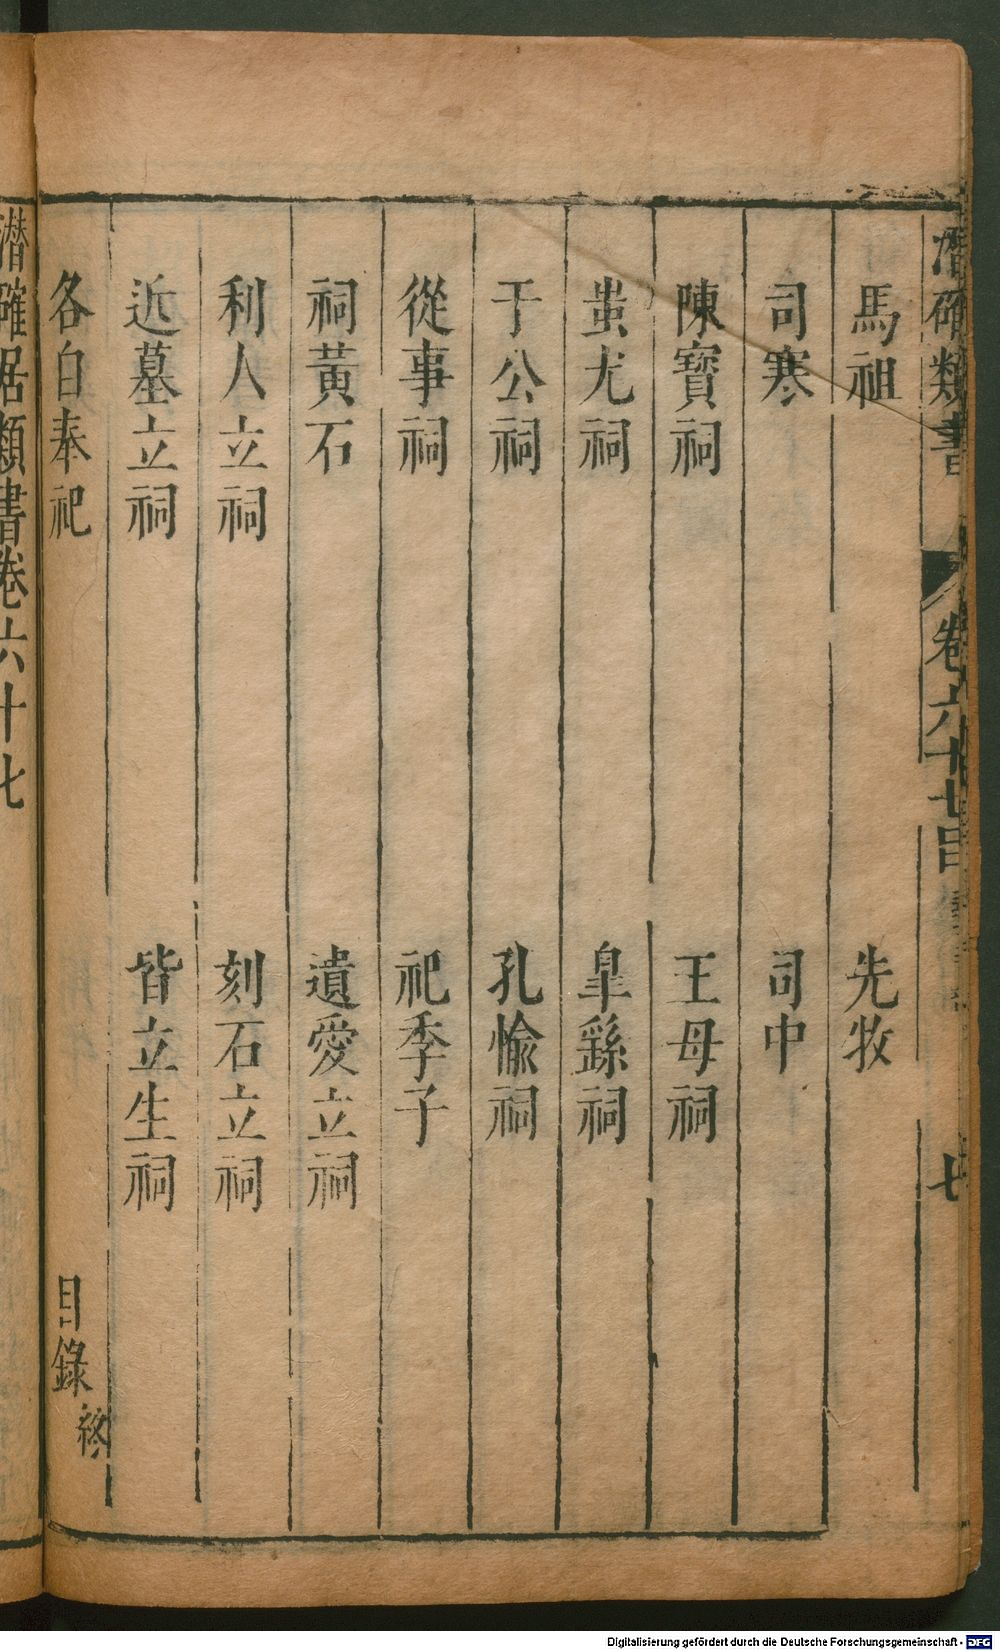 潛確類書
卷六十七目
七
馬祖 先牧
司寒 司中
陳寶祠 王母祠
蚩尤祠 臯繇祠
于公祠 孔愉祠
從事祠 祀季子
祠黃石 遺愛立祠
利人立祠 刻石立祠
近墓立祠 皆立生祠
各自奉祀 目錄終
潛確居類書卷六十七
Digitalisierung gefördert durch die Deutsche Forschungsgemeinschaft - DFG